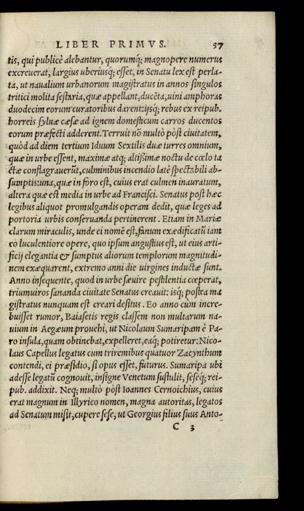 LIBER PRIMVS. 37
tis, qui publicè alebantur, quorumq́; magnopere numerus
excreuerat, largius uberiusq́; esset, in Senatu lex est perla-
ta, ut naualium urbanorum magistratus in annos singulos
tritici molita sestaria, quæ appellant, ducẽta, uini amphoras
duodecim eorum curatoribus darent: iisq́; rebus ex reipub.
horreis syluæ cæsæ ad ignem domesticum carros ducentos
eorum præfecti adderent. Terruit nõ multò pòst ciuitatem,
quòd ad diem tertium Iduum Sextilis duæ turres omnium,
quæ in urbe essent, maximæ atq; altissimæ noctu de cœlo ta
ctæ conflagrauerũt, culminibus incendio latè spectabili ab-
sumptis: una, quæ in foro est, cuius erat culmen inauratum,
altera quæ est media in urbe ad Francisci. Senatus post hæc
legibus aliquot promulgandis operam dedit, quæ leges ad
portoria urbis conseruanda pertinerent. Etiam in Mariæ
clarum miraculis, unde ei nomẽ est, fanum exædificatũ tam
eo luculentiore opere, quo ipsum angustius est, ut eius arti-
ficij elegantia & sumptus aliorum templorum magnitudi-
nem exæquarent, extremo anni die uirgines inductæ sunt.
Anno insequente, quod in urbe sæuire pestilentia cœperat,
triumuiros sananda ciuitate Senatus creauit: isq́; postea ma
gistratus nunquam est creari desitus. Eo anno cum incre-
buisset rumor, Baiasetis regis classem non multarum na-
uium in Aegæum prouehi, ut Nicolaum Sumaripam è Pa-
ro insula, quam obtinebat, expelleret, eaq́; potiretur: Nico-
laus Capellus legatus cum triremibus quatuor Zacynthum
contendi, ei præsidio, si opus esset, futurus. Sumaripa ubi
adesse legatũ cognouit, insigne Venetum sustulit, seseq́; rei-
pub. addixit. Neq; multò pòst Ioannes Cernoichius, cuius
erat magnum in Illyrico nomen, magna autoritas, legatos
ad Senatum misit, cupere sese, ut Georgius filius suus Anto-
C 3